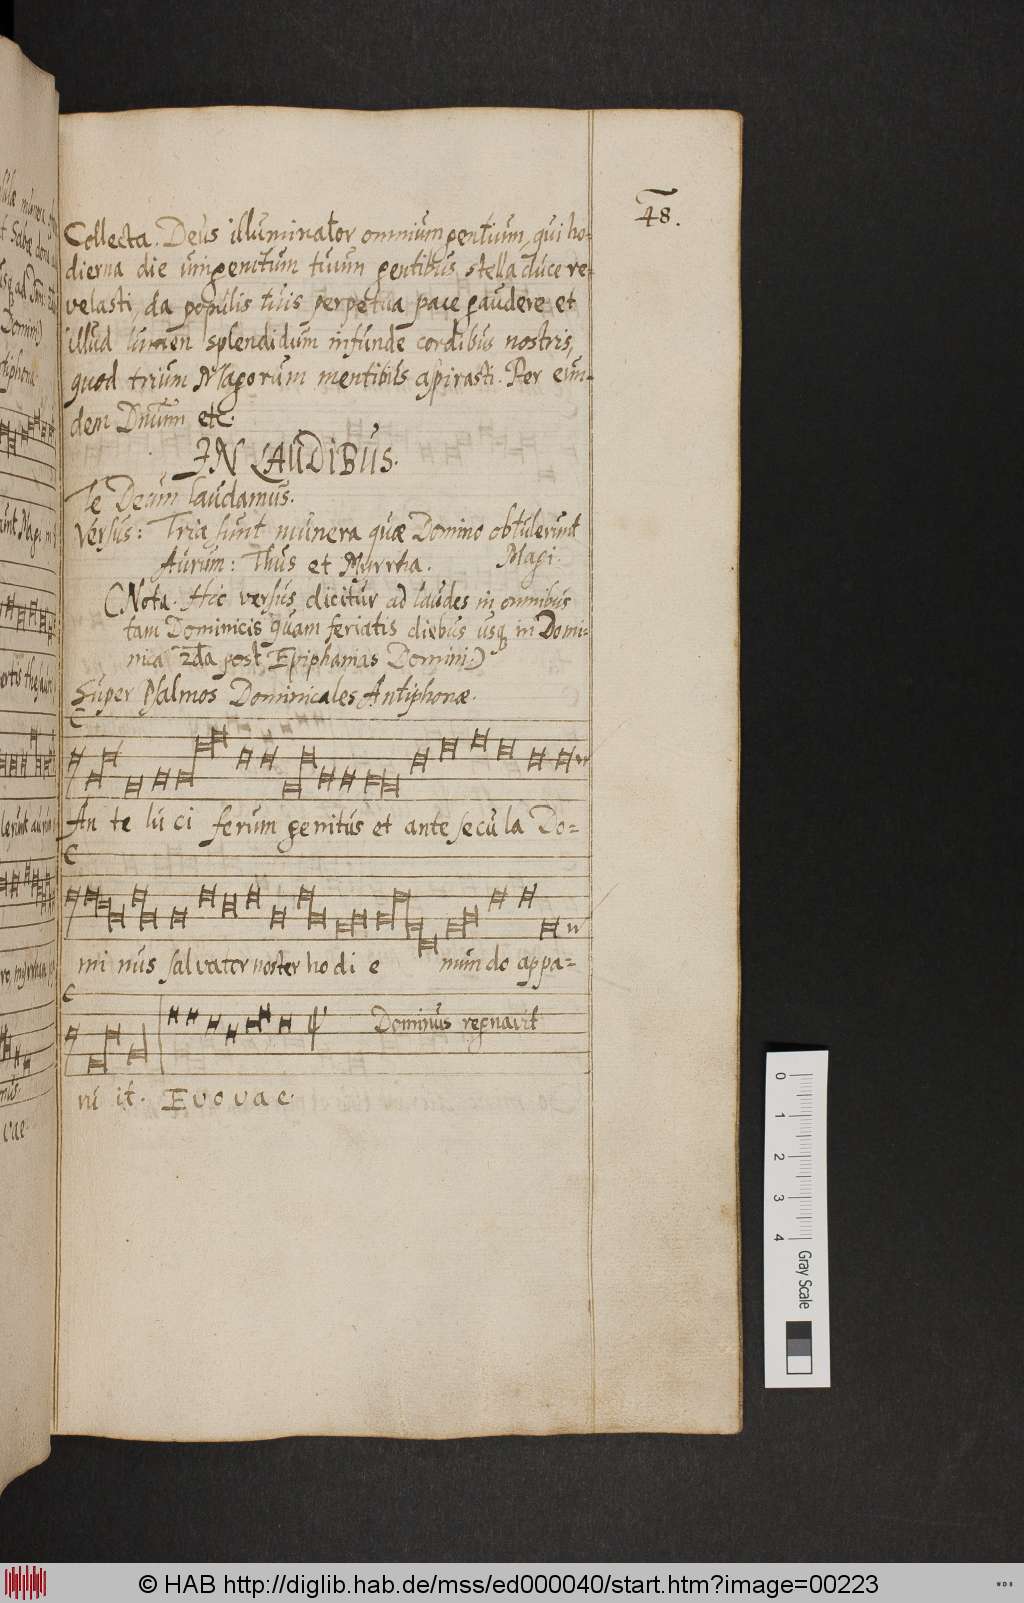 48.
Collecta. Deus illuminator omnium gentium, qui ho-
dierna die unigenitum tuum gentibus stella duce re-
velasti, da populis tuis perpetua pace gaudere et
illud lumen splendidum infunde cordibus nostris,
quod trium Magorum mentibus aspirasti. Per eun-
dem Dnum etc.
IN LAUDIBUS.
Te Deum laudamus.
Versus: Tria sunt munera quæ Domino obtulerunt
Aurum: Thus et Myrrha. Magi.
(Nota. Hic versus dicitur ad laudes in omnibus
tam Dominicis quam feriatis diebus usq in Domi-
nica 2da post Epiphanias Domini.)
Super Psalmos Dominicales Antiphonæ.
An te lu ci ferum genitus et ante secu la Do=
mi nus salvator noster ho di e mun do appa=
Dominus regnavit
ru it. Evovae.
© HAB http://diglib.hab.de/mss/ed000040/start.htm?image=00223
0
1
2
3
4
Gray Scale